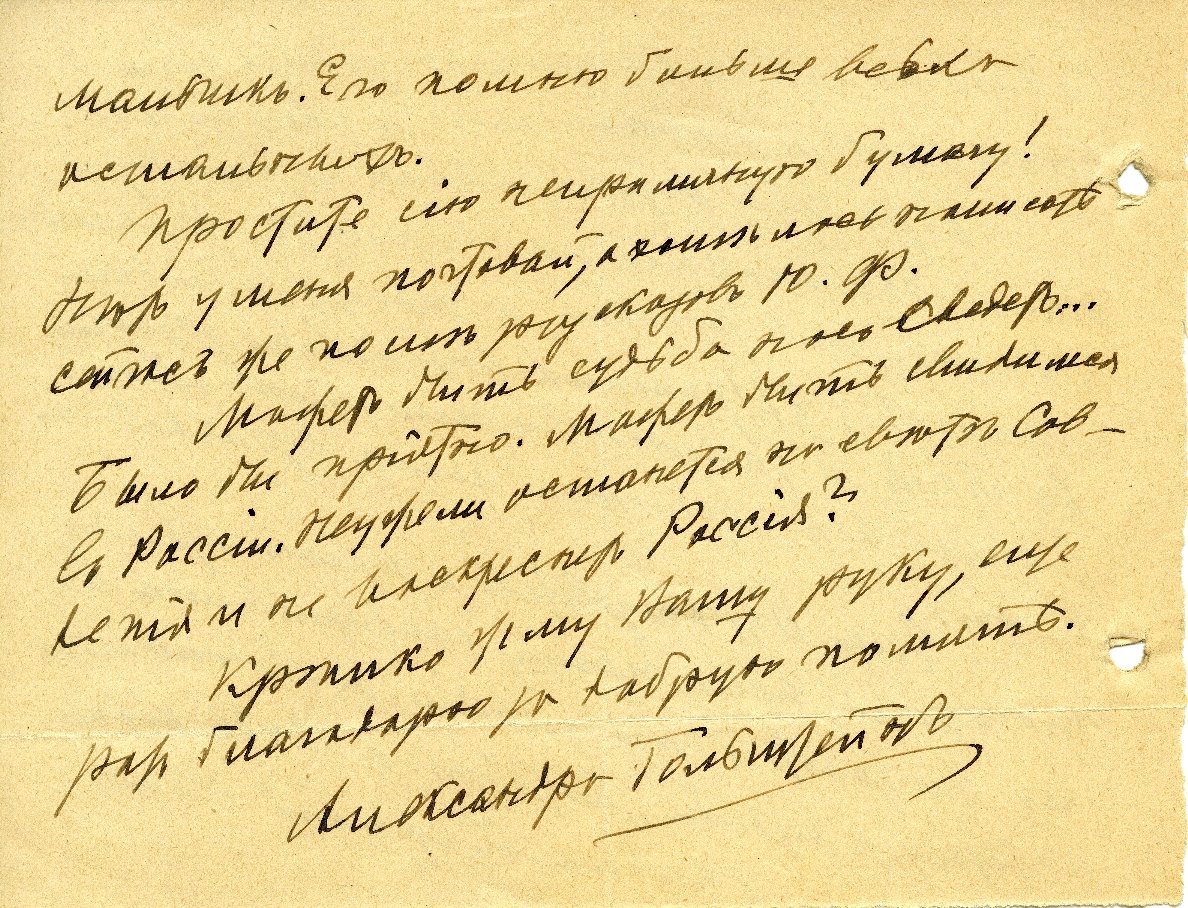 Его помню больше всѣхъ
остальныхъ.
Простите сію неприличную бумагу!
Нѣтъ у меня почтовой, а хотѣлось написать
сейчасъ же послѣ разсказовъ Ю. Ф.
Можетъ быть судьба насъ сведетъ...
Было бы пріятно. Можетъ быть свидимся
въ Россіи. Неужели останется на свѣтѣ Сов-
депія и не воскреснетъ Россія?
Крѣпко жму Вашу руку, еще
разъ благодарю за добрую память.
Александра Гольштейнъ